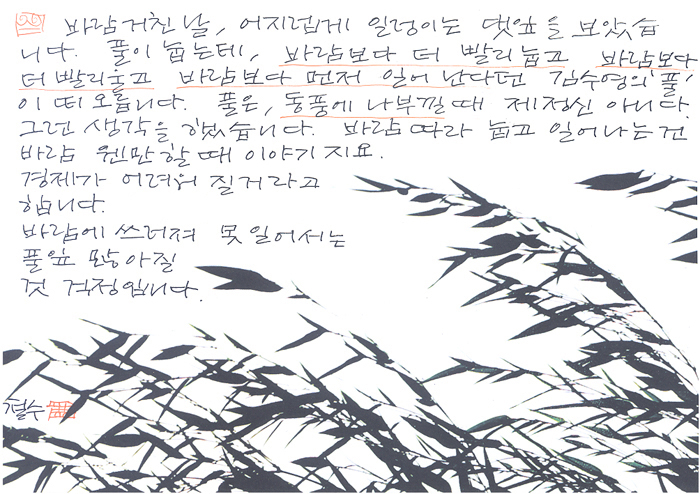 바람거친날, 어지럽게 일렁이는 댓잎을 보았습
니다. 풀이 눕는데, 바람보다 더 빨리눕고 바람보다
더 빨리울고 바람보다 먼저 일어 난다던 김수영의 '풀'
이 떠오릅니다. 풀은, 동풍에 나부낄때 제정신 아니다.
그런 생각을 했습니다. 바람따라 눕고 일어나는건
바람 웬만할때 이야기지요.
경제가 어려워 질거라고
합니다.
바람에 쓰러져 못일어서는
풀잎 많아질
것 걱정입니다.
철수